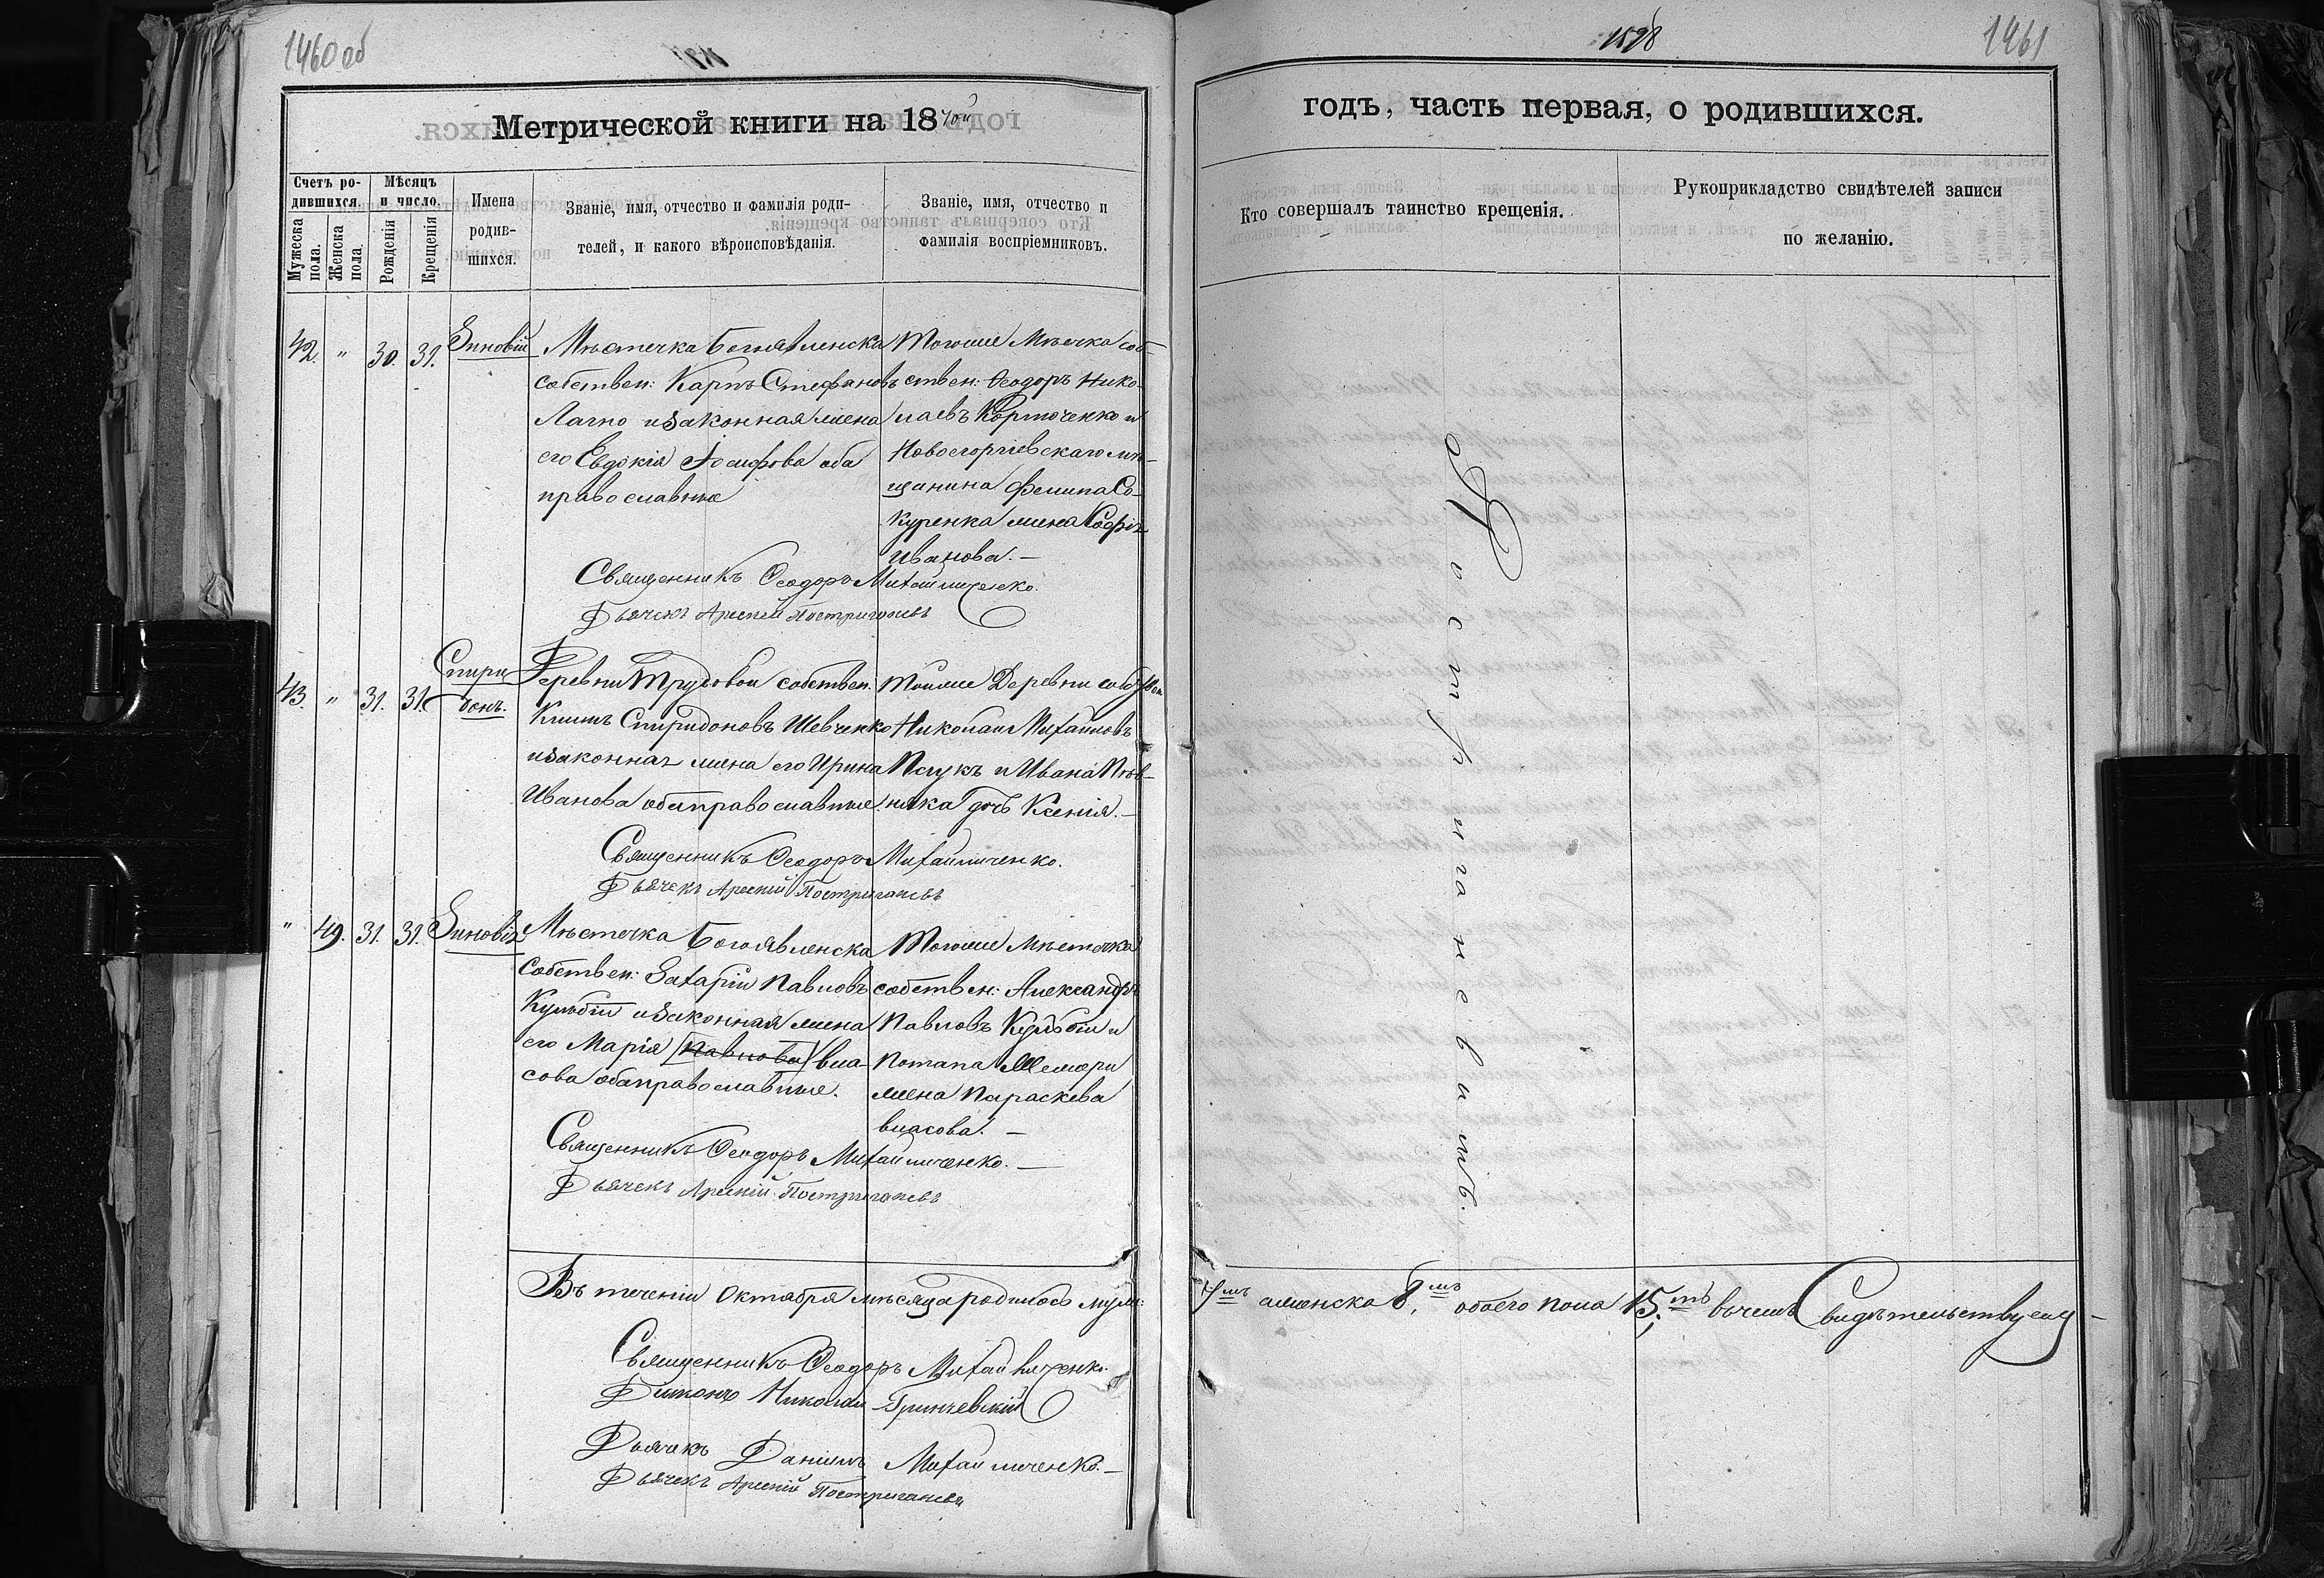 1460 об
1461
Метрической книги на 1870й
годъ, часть первая, о родившихся.
Счетъ ро-
дившихся.
Мѣсяцъ
и число.
Мужеска
пола.
Женска
пола
Рожденія
Крещенія
Имена
родив-
шихся.
Званіе, имя, отчество и фамилія роди-
телей, и какого вѣроисповѣданія.
Званіе, имя, отчество и
фамилія воспріемниковъ.
Кто совершалъ таинство крещенія.
Рукоприкладство свидѣтелей записи
по желанію.
42. " 30. 31. Зиновій
Мѣстечка Богоявленска
собствен: Карпъ Стефановъ
и законная жена
его Евдокія Іосифова оба
православные
Тогоже Мѣстечка соб-
ствен: Ѳеодоръ Нико-
лаевъ и
Новогеоргіевскаго мѣ-
щанина Со-
куренка жена Софія
Иванова. —
Священникъ Ѳеодоръ Михайличенко.
Дьячекъ Арсеній Постриганевъ
43. " 31. 31. Спири
донъ.
Деревни Трудовой собствен.
Климъ Спиридоновъ Шевченко
и законная жена его Ирина
Иванова оба православные.
Тойже Деревни собствен
Николай Михайловъ
и Ивана
дочь Ксенія. —
Священникъ Ѳеодоръ Михайличенко.
Дьячекъ Арсеній Постриганевъ
" 49. 31. 31. Зиновія
Мѣстечка Богоявленска
Собствен: Захарій Павловъ
Кульбій и законная жена
его Марія Павлова вла-
сова оба православные.
Тогоже Мѣстечка
собствен: Александръ
Павловъ Кульбій и
Потапа
жена Параскева
власова. —
Священникъ Ѳеодоръ Михайличенко. —
Дьячекъ Арсеній Постриганевъ
Постриганевъ.
Въ теченіи Октября мѣсяца родилось муж:
7мъ а женска 8.мъ обоего пола 15.тъ въ чемъ Свидѣтельствуемъ
Священникъ Ѳеодоръ Михайличенко.
Діаконъ Николай Гринчевскій
Дьячекъ Даніилъ Михайличенко. —
Дьячекъ Арсеній Постриганевъ